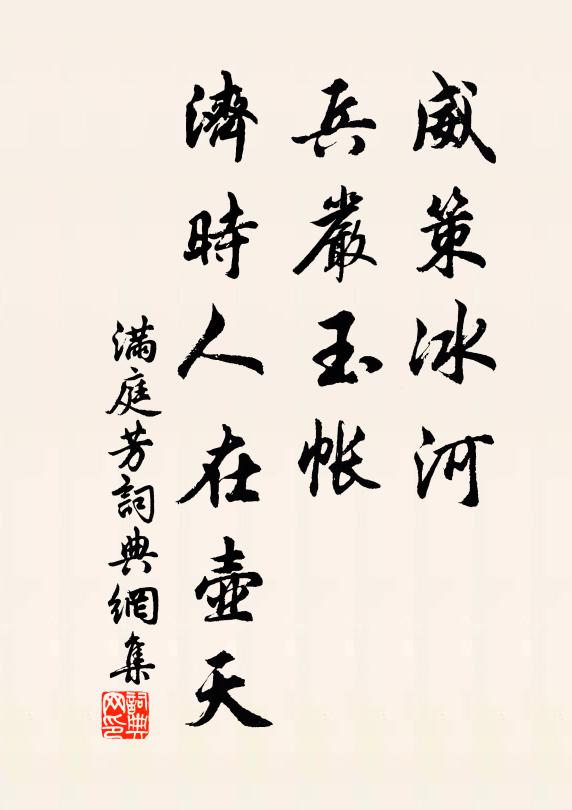 威策冰河
兵嚴玉帳
濟時人在壺天
滿庭芳詞典網集
詞典网印